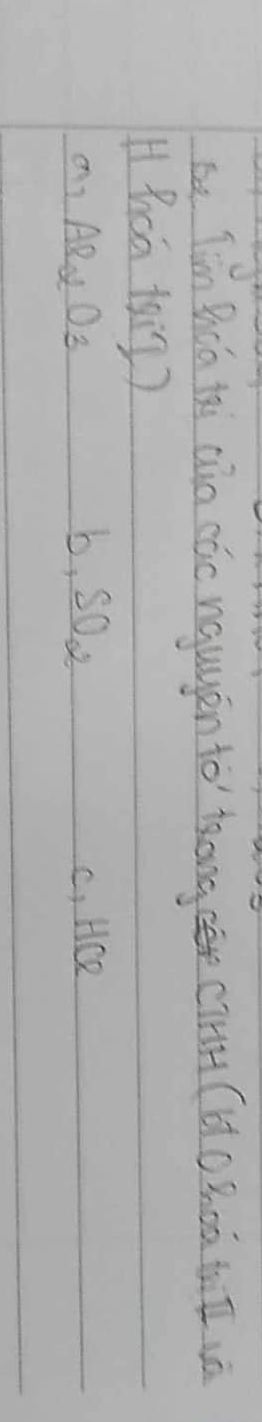 Tìm hoá trị của các nguyên tố trong CTHH ( O hoá trị II và
H hoá trị I)
a, Al2O3 b, SO2 c, HCl